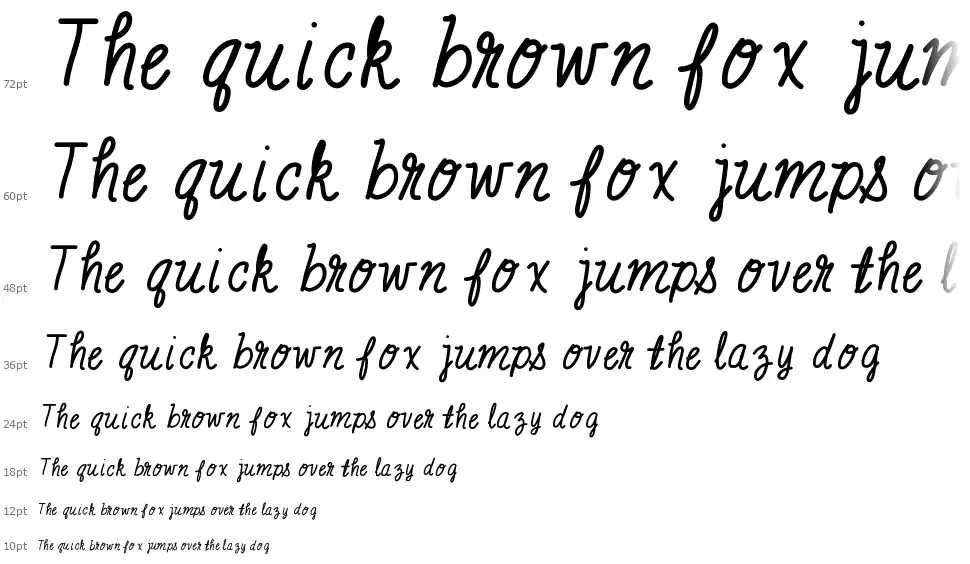 72pt The quick brown fox jum
60pt The quick brown fox jumps o
48pt The quick brown fox jumps over the l
36pt The quick brown fox jumps over the lazy dog
24pt The quick brown fox jumps over the lazy dog
18pt The quick brown fox jumps over the lazy dog
12pt The quick brown fox jumps over the lazy dog
10pt The quick brown fox jumps over the lazy dog